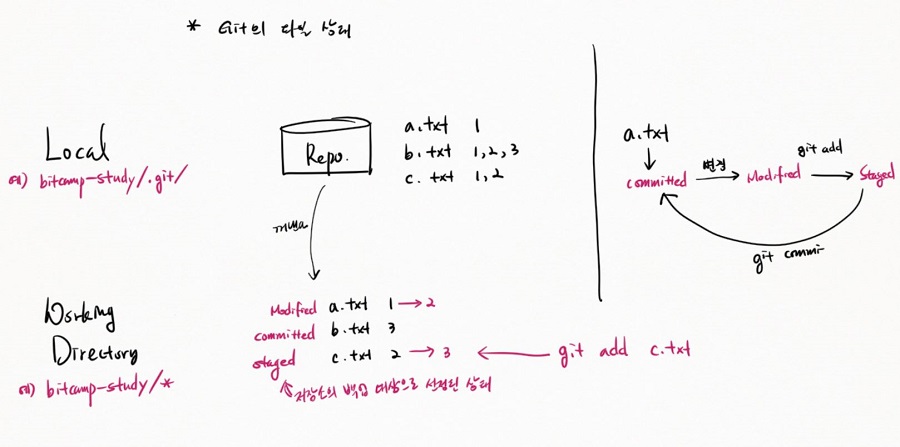 * Git의 파일 상태
Local
예) bitcamp-study/.git/
Repo.
a.txt 1
b.txt 1,2,3
c.txt 1,2
Working
Directory
예) bitcamp-study/*
Modified a.txt 1 → 2
committed b.txt 3
staged c.txt 2 → 3 ← git add c.txt
저장소의 백업 대상으로 선정된 상태
a.txt
committed 변경 Modified git add Staged
git commit